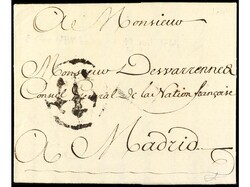 A Monsieur
Monsieur Desvarennes
Consul General de la Nation françoise
A Madrid